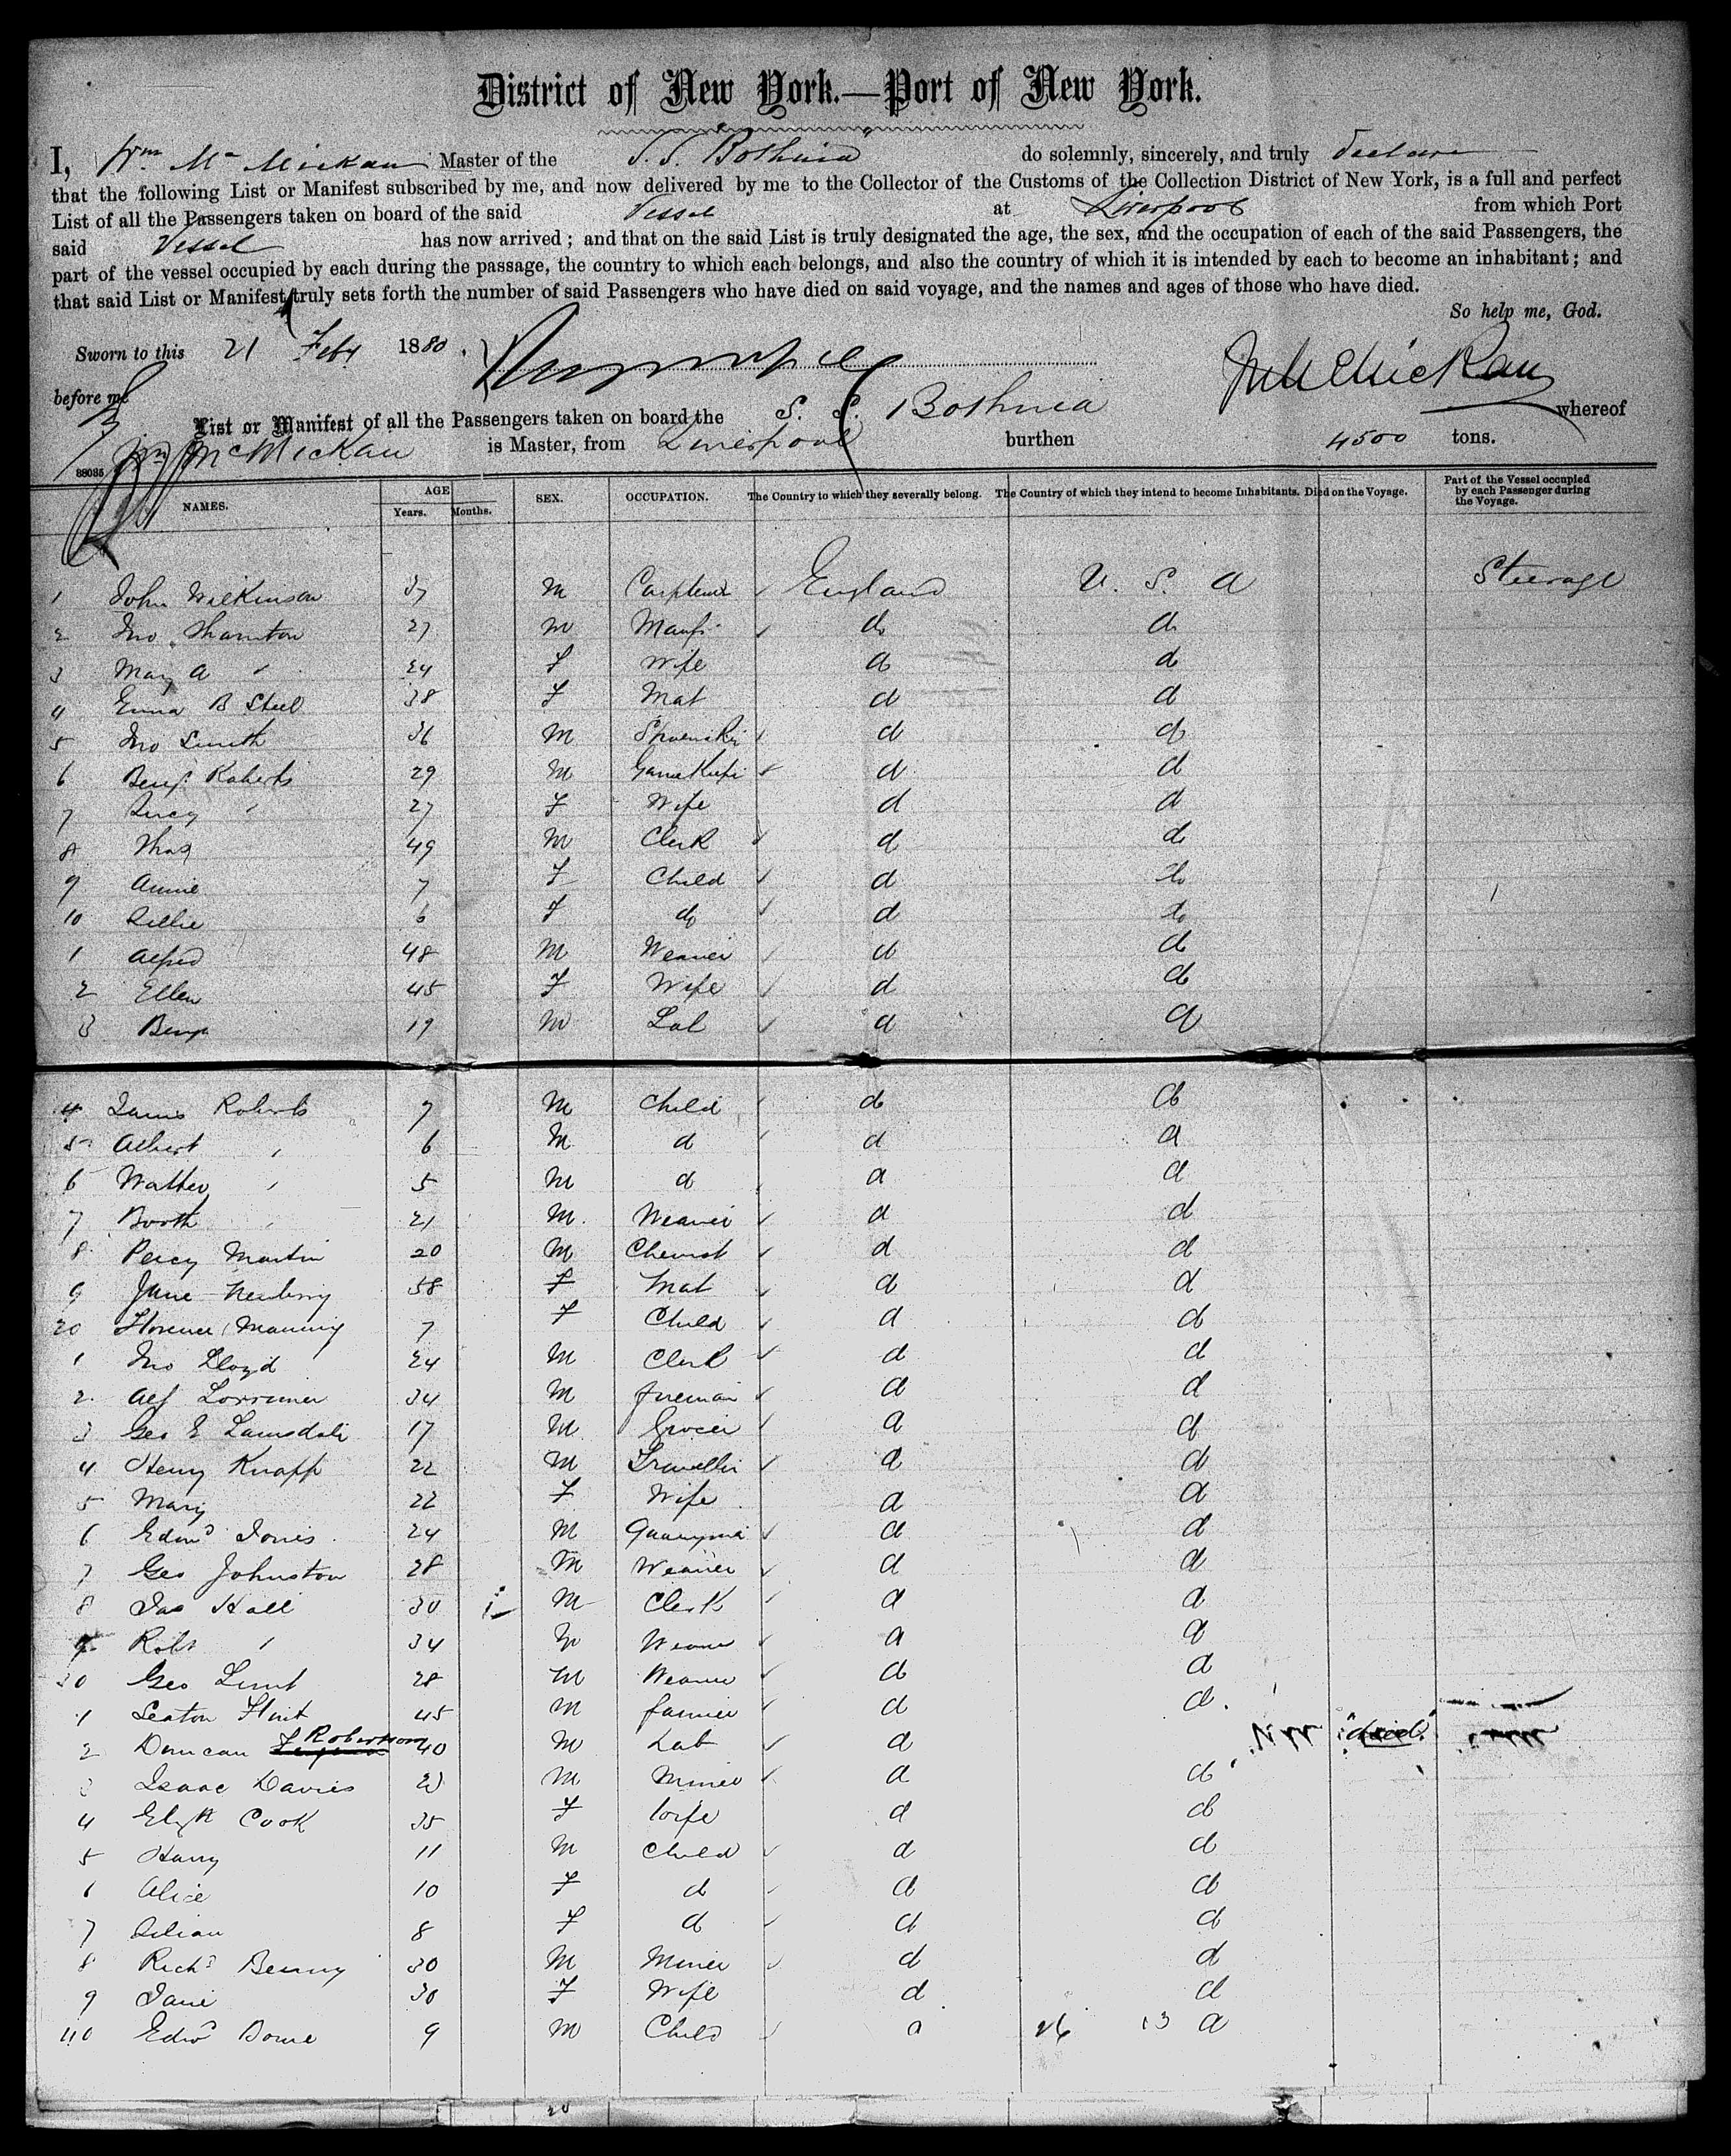 District of New York.—Port of New York.
I, Wm McMickan Master of the S. S. Bothnia do solemnly, sincerely, and truly declare
that the following List or Manifest subscribed by me, and now delivered by me to the Collector of the Customs of the Collection District of New York, is a full and perfect
List of all the Passengers taken on board of the said Vessel at Liverpool from which Port
said Vessel has now arrived; and that on the said List is truly designated the age, the sex, and the occupation of each of the said Passengers, the
part of the vessel occupied by each during the passage, the country to which each belongs, and also the country of which it is intended by each to become an inhabitant; and
that said List or Manifest truly sets forth the number of said Passengers who have died on said voyage, and the names and ages of those who have died.
So help me, God.
Sworn to this 21 Feby 1880. WMcMickan
before me
List or Manifest of all the Passengers taken on board the S. S. Bothnia whereof
Wm McMickan is Master, from Liverpool burthen 4500 tons.
88085
NAMES. AGE Years. Months. SEX. OCCUPATION. The Country to which they severally belong. The Country of which they intend to become Inhabitants. Died on the Voyage. Part of the Vessel occupied by each Passenger during the Voyage.
1 John Wilkinson 37 M Carpenter England U. S. A Steerage
2 Jno Thornton 27 M Manfr do do
3 Mary A " 24 F Wife do do
4 Emma B Steel 38 F Mat do do
5 Jno Smith 36 M do do
6 Benj. Roberts 29 M Gamekeepr do do
7 Lucy " 27 F Wife do do
8 Thos 49 M Clerk do do
9 Annie 7 F Child do do
10 Lillie 6 F do do do
1 Alfred 48 M Weaver do do
2 Ellen 45 F Wife do do
3 Benj 19 M Lab do do
4 James Roberts 7 M Child do do
5 Albert " 6 M do do do
6 Walter " 5 M do do do
7 Booth " 21 M Weaver do do
8 Percy Martin 20 M Chemist do do
9 Jane Newberry 58 F Mat do do
20 Florence Manning 7 F Child do do
1 Jno Lloyd 24 M Clerk do do
2 Alf Lorrimer 34 M fireman do do
3 Geo E Lamsdale 17 M Grocer do do
4 Henry Knapp 22 M Traveller do do
5 Mary 22 F Wife do do
6 Edwd Jones 24 M Quarryma do do
7 Geo Johnston 28 M Weaver do do
8 Jas Hall 30 M Clerk do do
9 Robt " 34 M Weaver do do
30 Geo Lunt 28 M Weaver do do
1 Seaton Flint 45 M farmer do do
2 Duncan Robertson 40 M Lab do "died"
3 Isaac Davies M Miner do do
4 Elizth Cook 35 F Wife do do
5 Harry 11 M Child do do
6 Alice 10 F do do do
7 Lilian 8 F do do do
8 Richd Benny 30 M Miner do do
9 Jane 30 F Wife do do
40 Edwd Bowe 9 M Child do 26 13 do